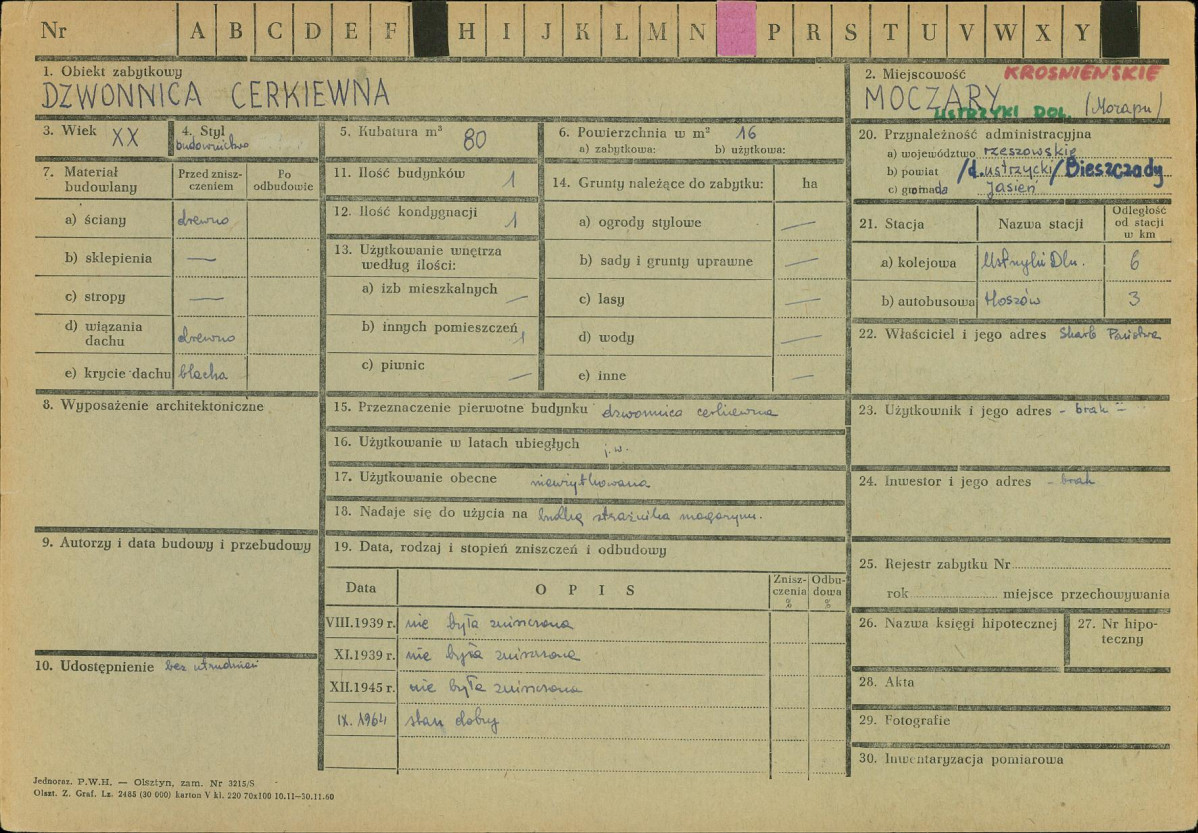 Nr A B C D E F H I J K L M N P R S T U V W X Y
1. Obiekt zabytkowy
DZWONNICA CERKIEWNA
2. Miejscowość KROŚNIEŃSKIE
MOCZARY
USTRZYKI DOL. (Morapu)
3. Wiek XX
4. Styl
budownictwo
5. Kubatura m³ 80
6. Powierzchnia w m² 16
a) zabytkowa: b) użytkowa:
7. Materiał budowlany
Przed znisz-
czeniem
Po
odbudowie
a) ściany drewno
b) sklepienia —
c) stropy —
d) wiązania
dachu drewno
e) krycie dachu blacha
8. Wyposażenie architektoniczne
9. Autorzy i data budowy i przebudowy
10. Udostępnienie bez utrudnień
11. Ilość budynków 1
12. Ilość kondygnacji 1
13. Użytkowanie wnętrza
według ilości:
a) izb mieszkalnych —
b) innych pomieszczeń 1
c) piwnic —
14. Grunty należące do zabytku: ha
a) ogrody stylowe —
b) sady i grunty uprawne —
c) lasy —
d) wody —
e) inne —
15. Przeznaczenie pierwotne budynku dzwonnica cerkiewna
16. Użytkowanie w latach ubiegłych j.w.
17. Użytkowanie obecne nieużytkowana
18. Nadaje się do użycia na budkę strażnika magazynu.
19. Data, rodzaj i stopień zniszczeń i odbudowy
Data OPIS
Znisz-
czenia
%
Odbu-
dowa
%
VIII.1939 r. nie była zniszczona
XI.1939 r. nie była zniszczona
XII.1945 r. nie była zniszczona
IX. 1964 stan dobry
20. Przynależność administracyjna
a) województwo rzeszowskie
b) powiat /d.ustrzycki/Bieszczady
c) gromada Jasień
21. Stacja Nazwa stacji
Odległość
od stacji
w km
a) kolejowa Ustrzyki Dln. 6
b) autobusowa Hoszów 3
22. Właściciel i jego adres Skarb Państwa
23. Użytkownik i jego adres - brak -
24. Inwestor i jego adres - brak
25. Rejestr zabytku Nr
rok miejsce przechowywania
26. Nazwa księgi hipotecznej
27. Nr hipo-
teczny
28. Akta
29. Fotografie
30. Inwentaryzacja pomiarowa
Jednoraz. P.W.H. — Olsztyn, zam. Nr 3215/S
Olszt. Z. Graf. Lz. 2485 (30 000) karton V kl. 220 70x100 10.11—30.11.60